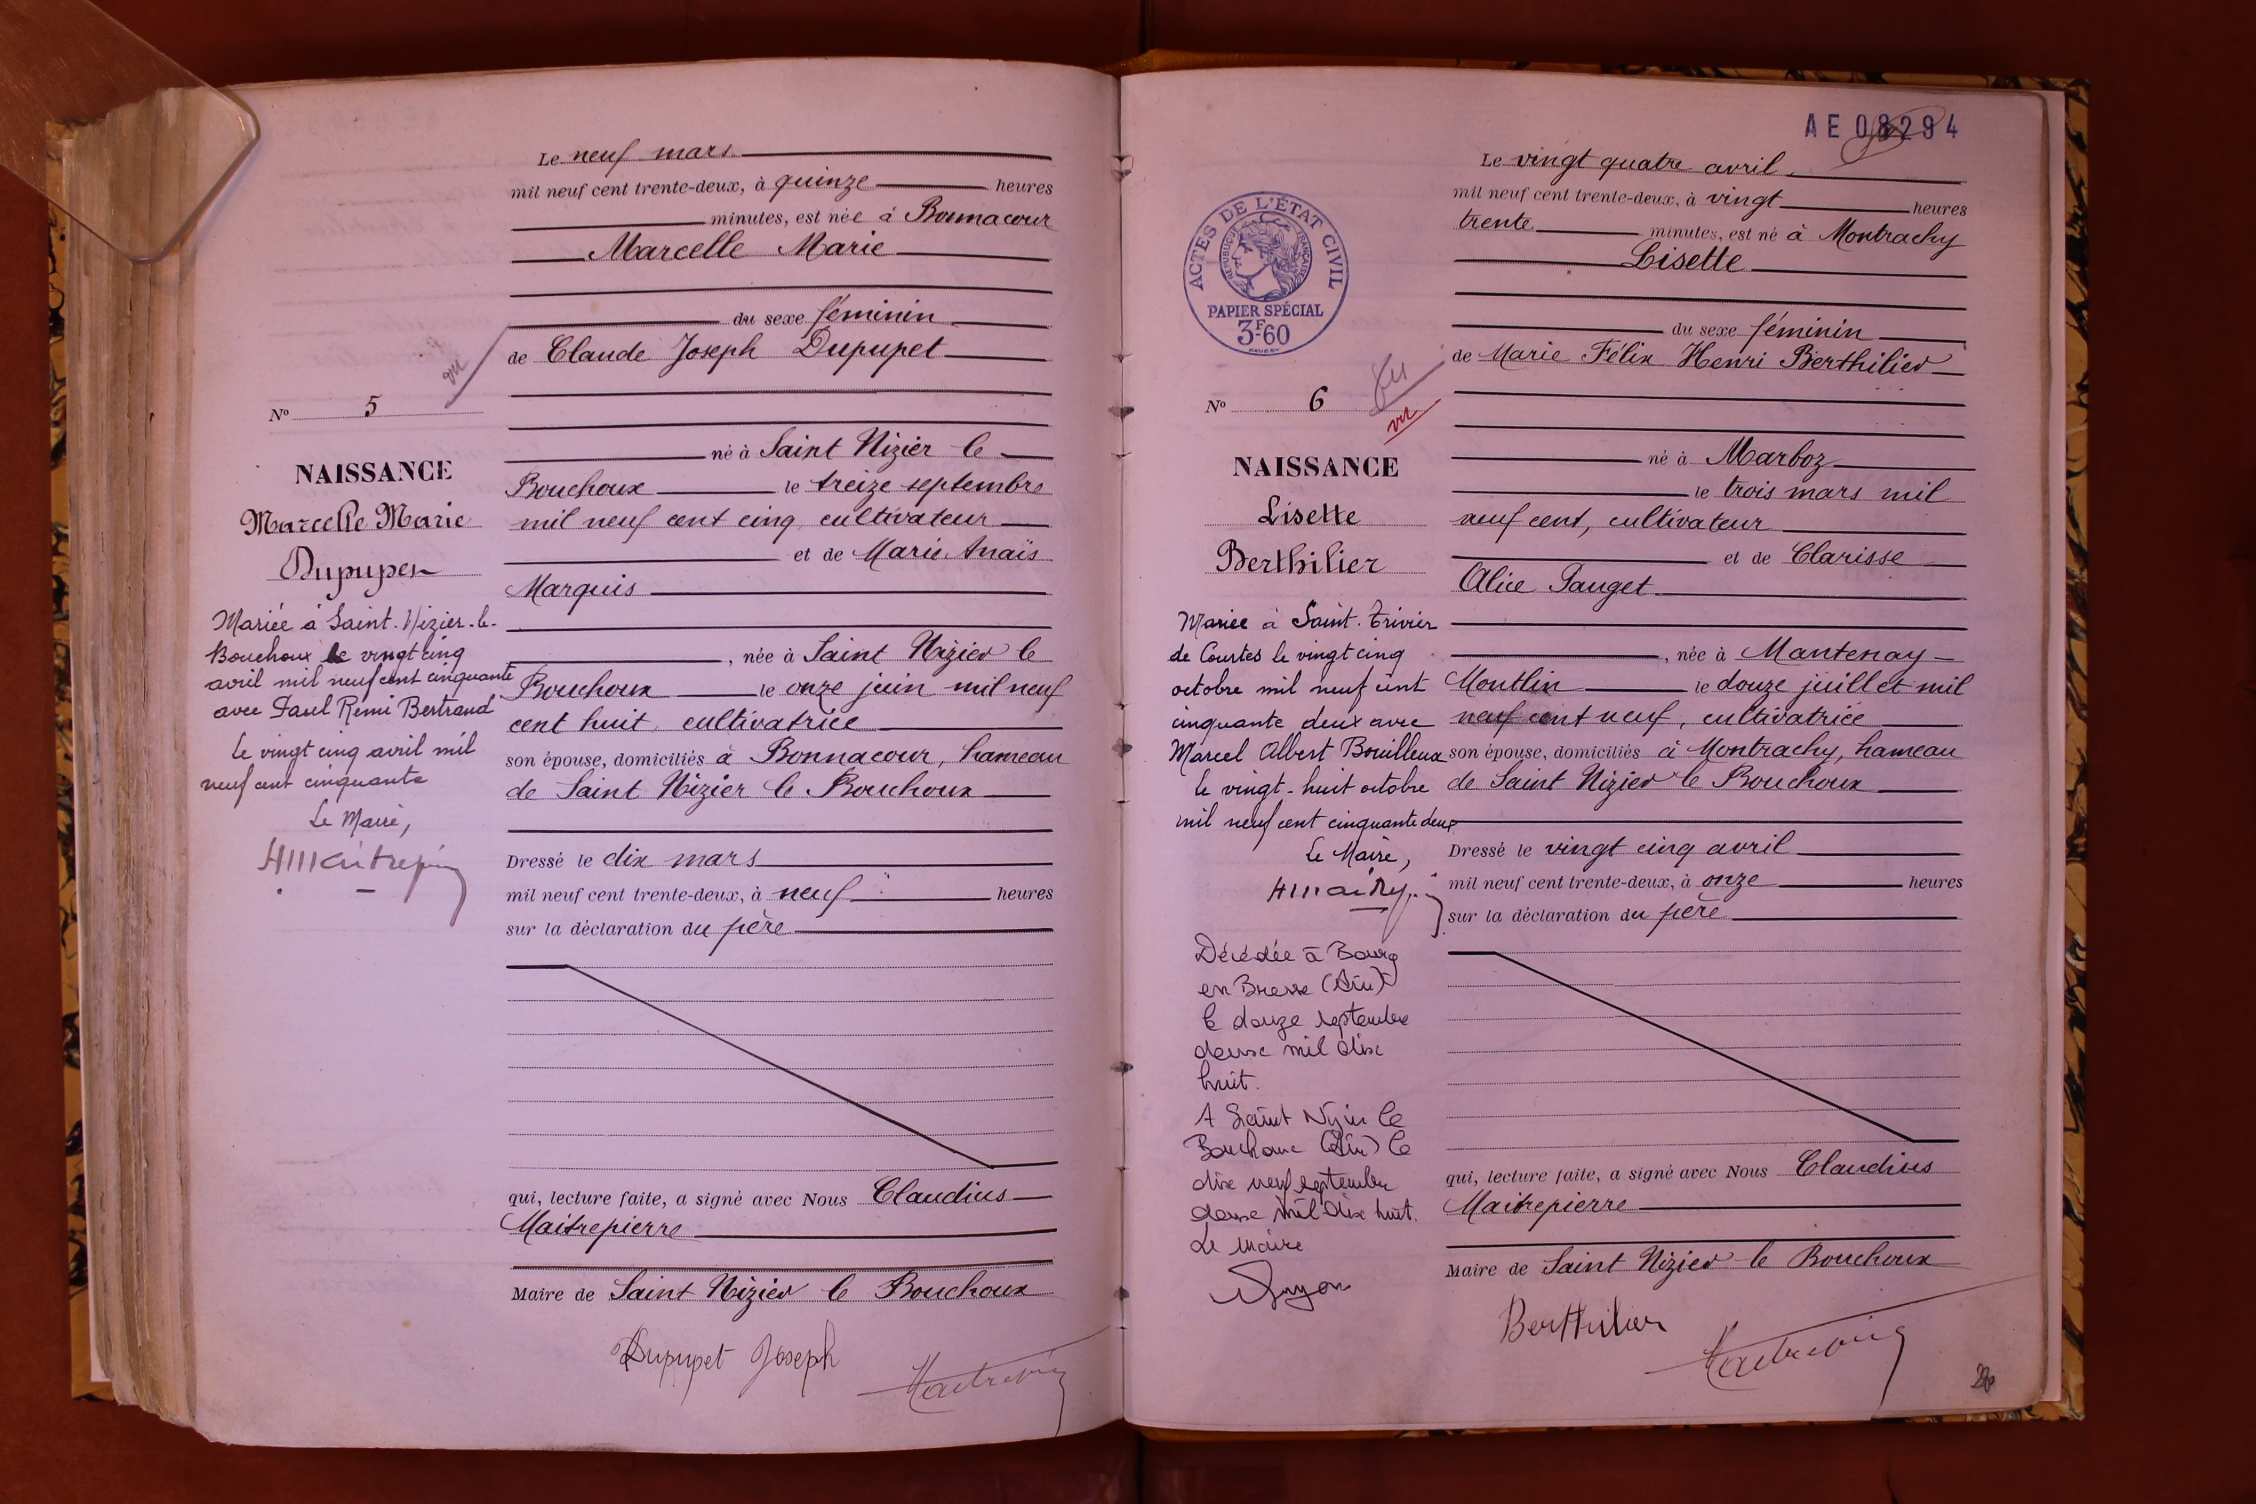 Le neuf mars
mil neuf cent trente-deux, à quinze heures
minutes, est née à Bonnacour
Marcelle Marie
du sexe féminin
de Claude Joseph Dupupet
vu
N° 5
né à Saint Nizier le
Bouchoux le treize septembre
mil neuf cent cinq, cultivateur
et de Marie Anaïs
Marquis
, née à Saint Nizier le
Bouchoux le onze juin mil neuf
cent huit, cultivatrice
son épouse, domiciliés à Bonnacour, hameau
de Saint Nizier le Bouchoux
Dressé le dix mars
mil neuf cent trente-deux, à neuf heures
sur la déclaration du père
qui, lecture faite, a signé avec Nous Claudius
Maitrepierre
Maire de Saint Nizier le Bouchoux
Dupupet Joseph
NAISSANCE
Marcelle Marie
Dupupet
Mariée à Saint-Nizier-le-
Bouchoux le vingt cinq
avril mil neuf cent cinquante
avec Paul Rémi Bertrand
Le vingt cinq avril mil
neuf cent cinquante
Le Maire,
AE 08294
Le vingt quatre avril
mil neuf cent trente-deux, à vingt heures
trente minutes, est né à Montrachy
Lisette
du sexe féminin
de Marie Félix Henri Berthilier
né à Marboz
le trois mars mil
neuf cent, cultivateur
et de Clarisse
Alice Pauget
, née à Mantenay
Montlin le douze juillet mil
neuf cent neuf, cultivatrice
son épouse, domiciliés à Montrachy, hameau
de Saint Nizier le Bouchoux
Dressé le vingt cinq avril
mil neuf cent trente-deux, à onze heures
sur la déclaration du père
qui, lecture faite, a signé avec Nous Claudius
Maitrepierre
Maire de Saint Nizier le Bouchoux
Berthilier
ACTES DE L'ÉTAT CIVIL
RÉPUBLIQUE FRANÇAISE
PAPIER SPÉCIAL
3F60
N° 6
vu
vu
NAISSANCE
Lisette
Berthilier
Mariée à Saint-Trivier
de Courtes le vingt cinq
octobre mil neuf cent
cinquante deux avec
Marcel Albert Bouilloux
le vingt-huit octobre
mil neuf cent cinquante deux
Le Maire,
Décédée à Bourg
en Bresse (Ain)
le douze septembre
deux mil dix
huit.
A Saint Nizier le
Bouchoux (Ain) le
dix neuf septembre
deux mil dix huit.
Le Maire